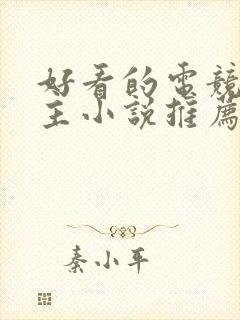 好看的電競
主小說推薦
秦小平